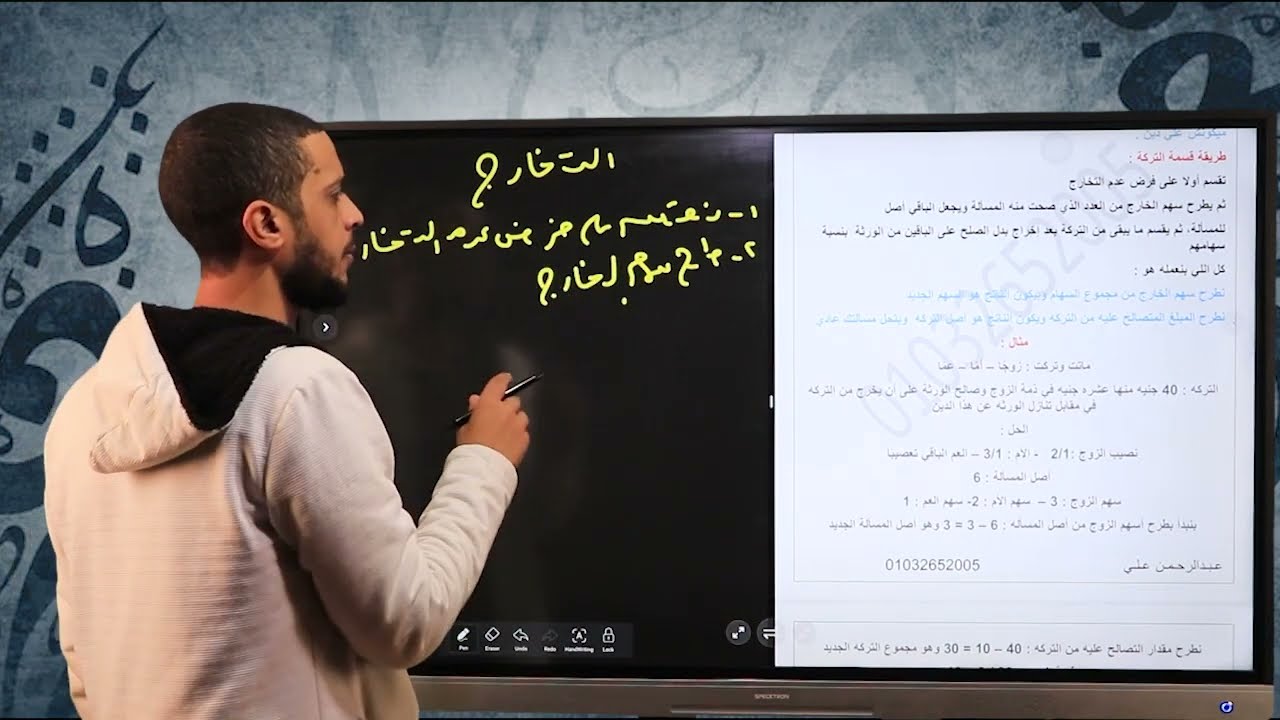 التخارج
١- نقسم
عدم التخارج
٢- طرح سهم الخارج
ميكونش على دين .
طريقة قسمة التركة :
تقسم أولا على فرض عدم التخارج
ثم يطرح سهم الخارج من العدد الذي صحت منه المسألة ويجعل الباقي أصل
للمسألة، ثم يقسم ما يبقى من التركة بعد إخراج بدل الصلح على الباقين من الورثة بنسبة
سهامهم
كل اللي بنعمله هو :
نطرح سهم الخارج من مجموع السهام وبيكون الناتج هو السهم الجديد
نطرح المبلغ المتصالح عليه من التركه ويكون الناتج هو أصل التركه وبتحل مسألتك عادي
مثال :
ماتت وتركت : زوجًا – أمًا – عمًا
التركه : 40 جنيه منها عشره جنيه في ذمة الزوج وصالح الورثة على أن يخرج من التركه
في مقابل تنازل الورثه عن هذا الدين
الحل :
نصيب الزوج :2/1 - الأم : 3/1 – العم الباقي تعصيبا
أصل المسألة : 6
سهم الزوج : 3 – سهم الام : 2- سهم العم : 1
بنبدأ بطرح أسهم الزوج من أصل المسأله : 6 – 3 = 3 وهو أصل المسألة الجديد
عبدالرحمن علي 01032652005
نطرح مقدار التصالح عليه من التركه : 40 – 10 = 30 وهو مجموع التركه الجديد
01032652005
Pen Eraser Undo Redo HandWriting Lock
SPECKTRON